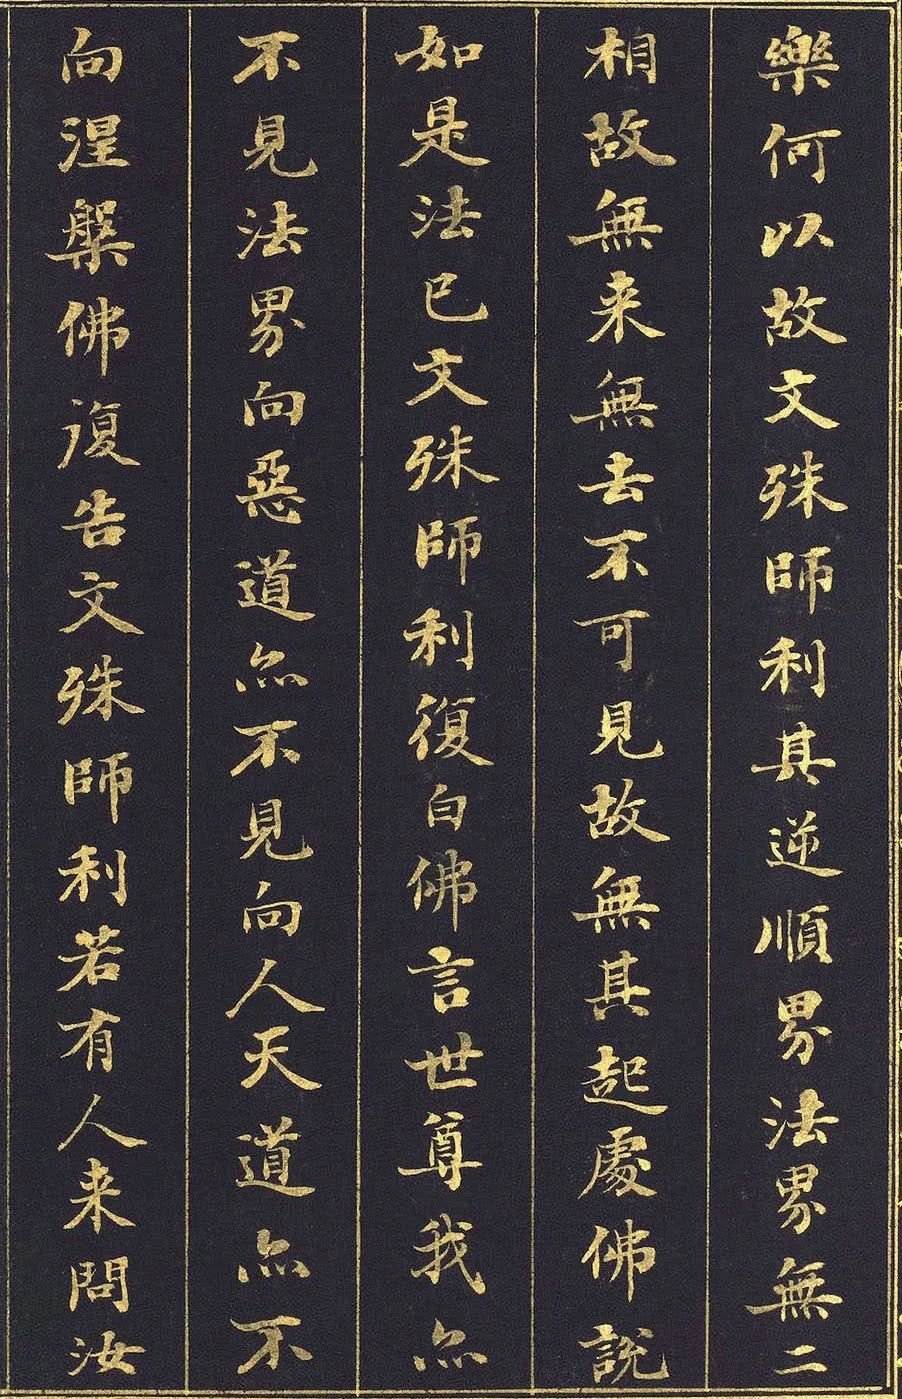 樂何以故文殊師利其逆順界法界無二
相故無来無去不可見故無其起處佛說
如是法已文殊師利復白佛言世尊我亦
不見法界向惡道亦不見向人天道亦不
向涅槃佛復告文殊師利若有人来問汝